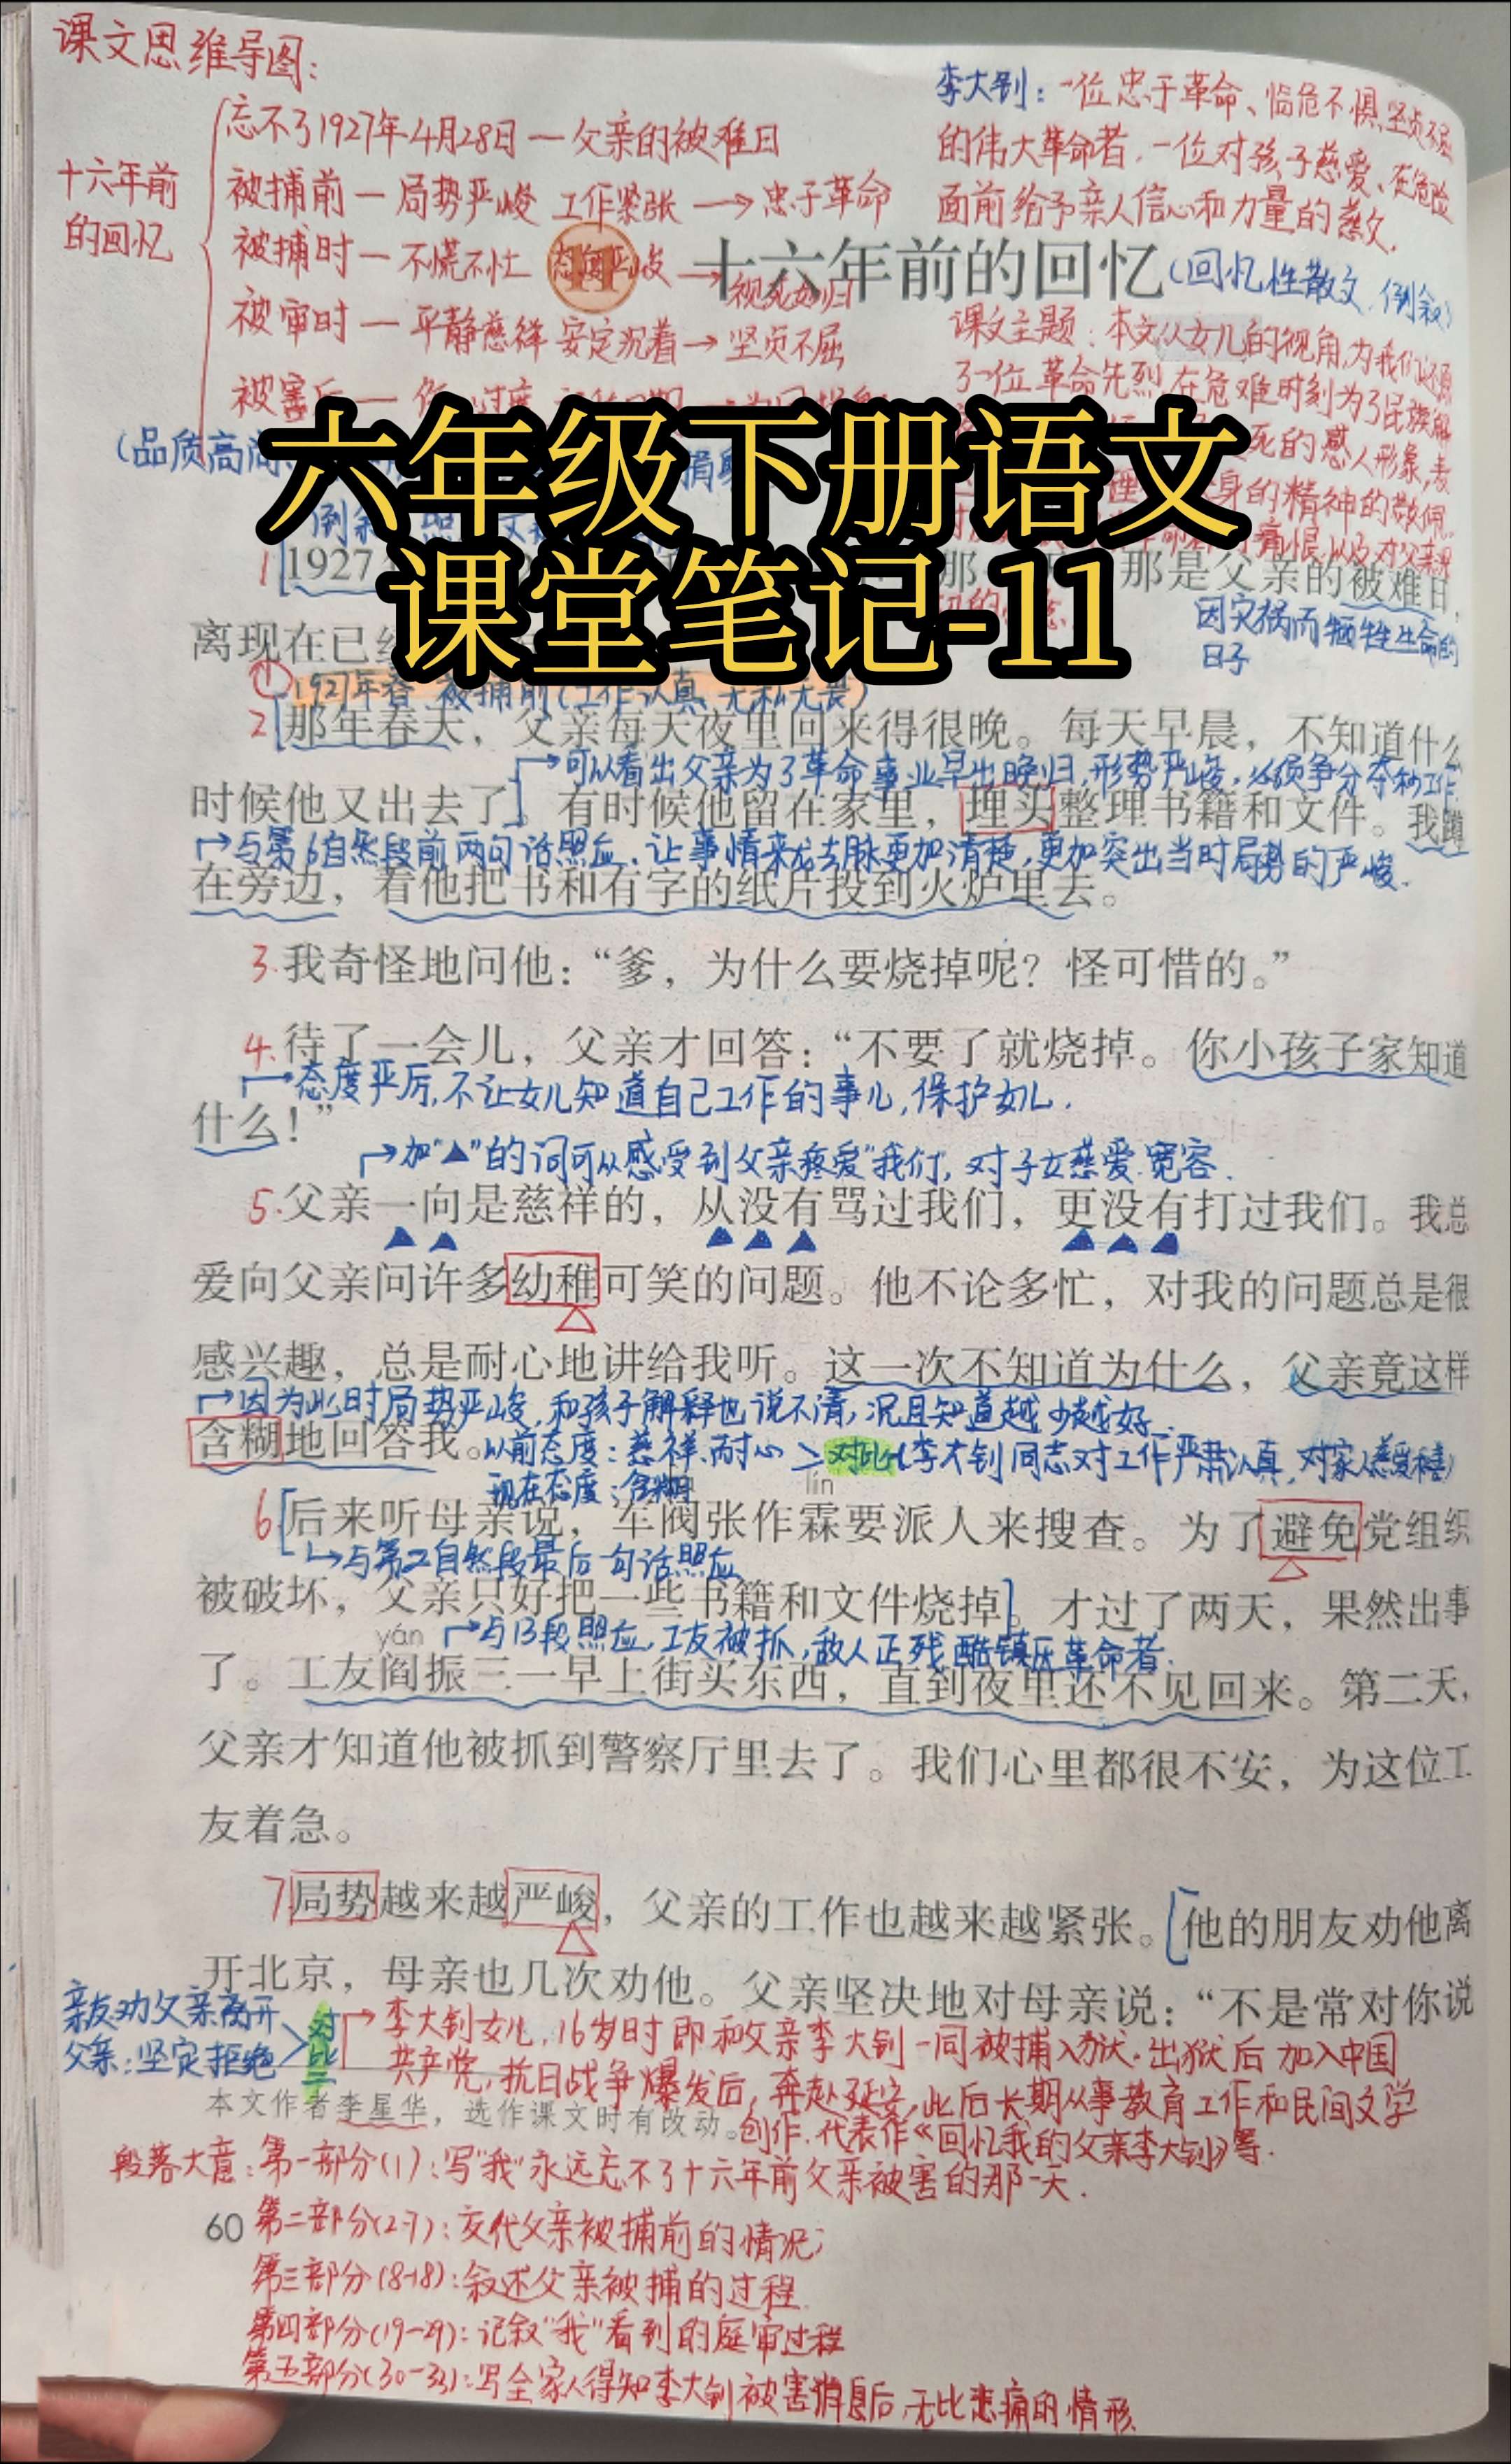 课文思维导图：
十六年前
的回忆
忘不了1927年4月28日—父亲的被难日
被捕前—局势严峻 工作紧张→忠于革命
被捕时—不慌不忙 态度严峻→视死如归
被审时—平静慈祥 安定沉着→坚贞不屈
被害后—
李大钊：一位忠于革命、临危不惧、坚贞不屈
的伟大革命者，一位对孩子慈爱、在危险
面前给予亲人信心和力量的慈父。
11 十六年前的回忆（回忆性散文，倒叙）
课文主题：本文从女儿的视角，为我们还原
了一位革命先烈在危难时刻为了民族解
死的感人形象，表
身的精神的敬佩，
痛恨以及对父亲深
（品质高尚
捐躯
倒叙
六年级下册语文
课堂笔记-11
1 1927 那 那是父亲的被难日，
离现在已经
因灾祸而牺牲生命的
日子
1927年春 被捕前（工作认真、无私无畏）
2 那年春天，父亲每天夜里回来得很晚。每天早晨，不知道什么
→可以看出父亲为了革命事业早出晚归，形势严峻，必须争分夺秒工作
时候他又出去了。有时候他留在家里，埋头整理书籍和文件。我蹲
→与第6自然段前两句话照应，让事情来龙去脉更加清楚，更加突出当时局势的严峻.
在旁边，看他把书和有字的纸片投到火炉里去。
3.我奇怪地问他：“爹，为什么要烧掉呢？怪可惜的。”
4.待了一会儿，父亲才回答：“不要了就烧掉。你小孩子家知道
→态度严厉，不让女儿知道自己工作的事儿，保护女儿.
什么！”
→加“▲”的词可以感受到父亲疼爱“我们，对子女慈爱、宽容.
5.父亲一向是慈祥的，从没有骂过我们，更没有打过我们。我总
爱向父亲问许多幼稚可笑的问题。他不论多忙，对我的问题总是很
感兴趣，总是耐心地讲给我听。这一次不知道为什么，父亲竟这样
→因为此时局势严峻，和孩子解释也说不清，况且知道越少越好.
含糊地回答我。以前态度：慈祥、耐心 >对比（李大钊同志对工作严肃认真，对家人慈爱
现在态度：含糊 lín
6 后来听母亲说，军阀张作霖要派人来搜查。为了避免党组织
→与第二自然段最后一句话照应
被破坏，父亲只好把一些书籍和文件烧掉。才过了两天，果然出事
yán →与13段照应，工友被抓，敌人正残酷镇压革命者.
了。工友阎振三一早上街买东西，直到夜里还不见回来。第二天，
父亲才知道他被抓到警察厅里去了。我们心里都很不安，为这位工
友着急。
7 局势越来越严峻，父亲的工作也越来越紧张。他的朋友劝他离
开北京，母亲也几次劝他。父亲坚决地对母亲说：“不是常对你说
亲友劝父亲离开
父亲：坚定拒绝
对比
→李大钊女儿，16岁时即和父亲李大钊一同被捕入狱。出狱后加入中国
共产党，抗日战争爆发后，奔赴延安，此后长期从事教育工作和民间文学
本文作者李星华，选作课文时有改动。创作.代表作《回忆我的父亲李大钊》等.
段落大意：第一部分(1)：写“我”永远忘不了十六年前父亲被害的那一天.
60 第二部分(2-7)：交代父亲被捕前的情况；
第三部分(8-18)：叙述父亲被捕的过程
第四部分(19-29)：记叙“我”看到的庭审过程
第五部分(30-33)：写全家人得知李大钊被害消息后，无比悲痛的情形.